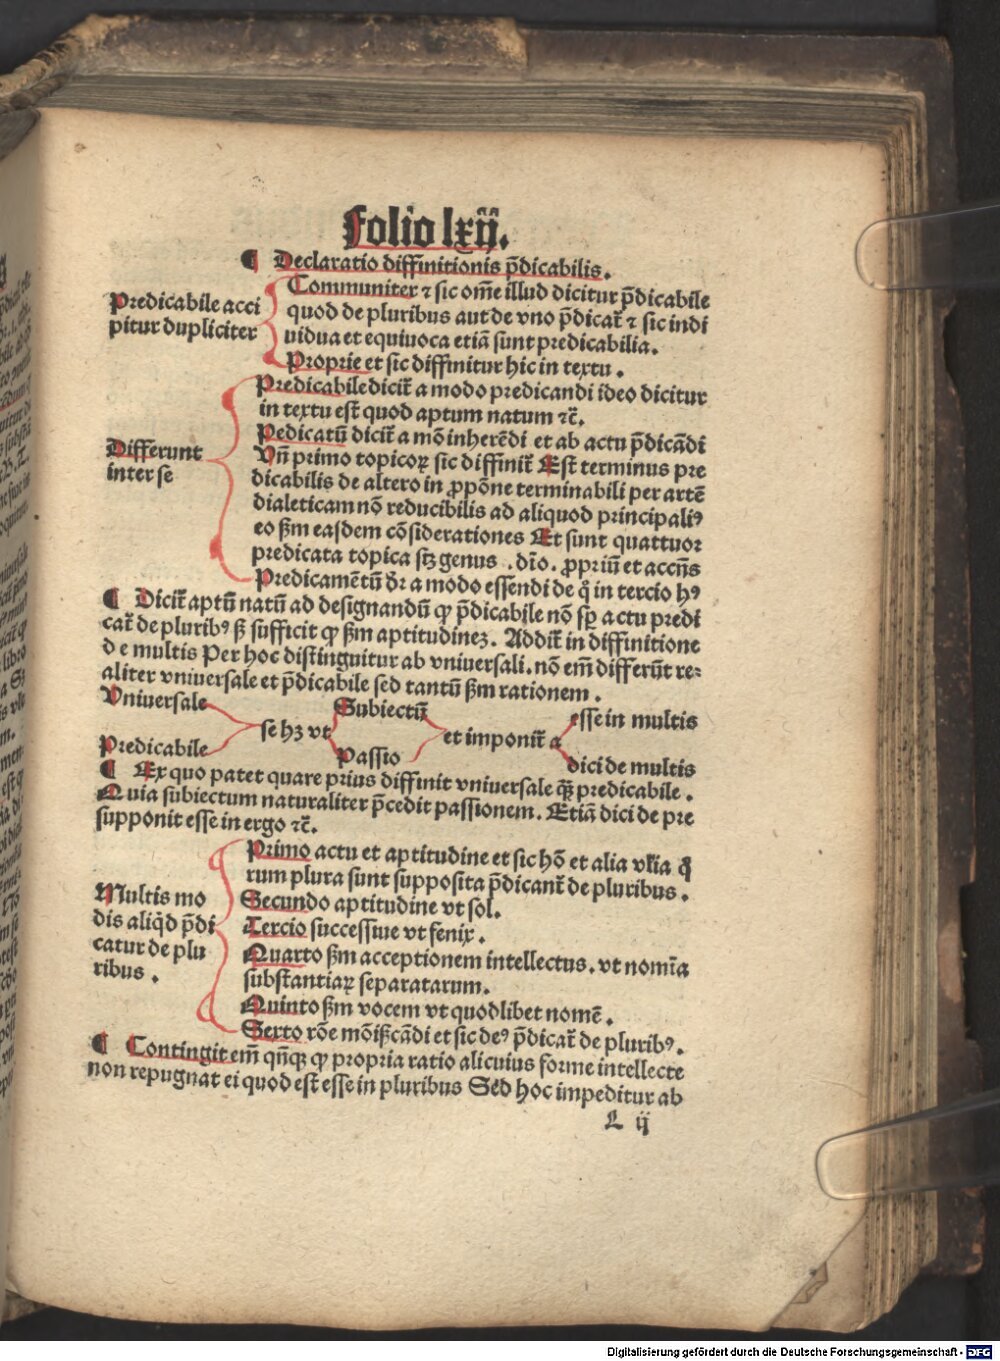 folio lxij.
¶ Declaratio diffinitionis p̄dicabilis.
Predicabile acci
pitur dupliciter
Communiter ⁊ sic om̄e illud dicitur p̄dicabile
quod de pluribus aut de vno p̄dicat̄ ⁊ sic indi
uidua et equiuoca etiā sunt predicabilia.
Proprie et sic diffinitur hic in textu.
Differunt
inter se
Predicabile dicit̄ a modo predicandi ideo dicitur
in textu est quod aptum natum ⁊c̄.
Pedicatū dicit̄ a mō inherēdi et ab actu p̄dicādi
Vn̄ primo topicoꝝ sic diffinit̄ Est terminus pre
dicabilis de altero in ꝓpōne terminabili per artē
dialeticam nō reducibilis ad aliquod principaliꝰ
eo ẜm easdem cōsiderationes Et sunt quattuor
predicata topica sꝫ genus . dr̄o. ꝓpriū et accn̄s
Predicamētū dr̄ a modo essendi de q̊ in tercio hꝰ
¶ Dicit̄ aptū natū ad designandū ꝙ p̄dicabile nō sꝑ actu predi
cat̄ de pluribꝰ ẜ sufficit ꝙ ẜm aptitudineꝫ. Addit̄ in diffinitione
de multis Per hoc distinguitur ab vniuersali. nō em̄ differūt re⸗
aliter vniuersale et p̄dicabile sed tantū ẜm rationem.
Vniuersale
Predicabile
se hꝫ vt
Subiectū
Passio
et imponit̄ a
esse in multis
dici de multis
¶ Ex quo patet quare prius diffinit vniuersale qꝫ predicabile.
Quia subiectum naturaliter p̄cedit passionem. Etiā dici de pre
supponit esse in ergo ⁊c̄.
Multis mo
dis aliqd p̄di
catur de plu
ribus.
Primo actu et aptitudine et sic hō et alia vl̄ia q̄
rum plura sunt supposita p̄dicant̄ de pluribus.
Secundo aptitudine vt sol.
Tercio successiue vt fenix.
Quarto ẜm acceptionem intellectus. vt nomīa
substantiaꝝ separatarum.
Quinto ẜm vocem vt quodlibet nomē.
Sexto rōe mōi ẜcādi et sic deꝰ p̄dicat̄ de pluribꝰ.
¶ Contingit em̄ qn̄qꝫ ꝙ propria ratio alicuius forme intellecte
non repugnat ei quod est esse in pluribus Sed hoc impeditur ab
L ij
Digitalisierung gefördert durch die Deutsche Forschungsgemeinschaft - DFG